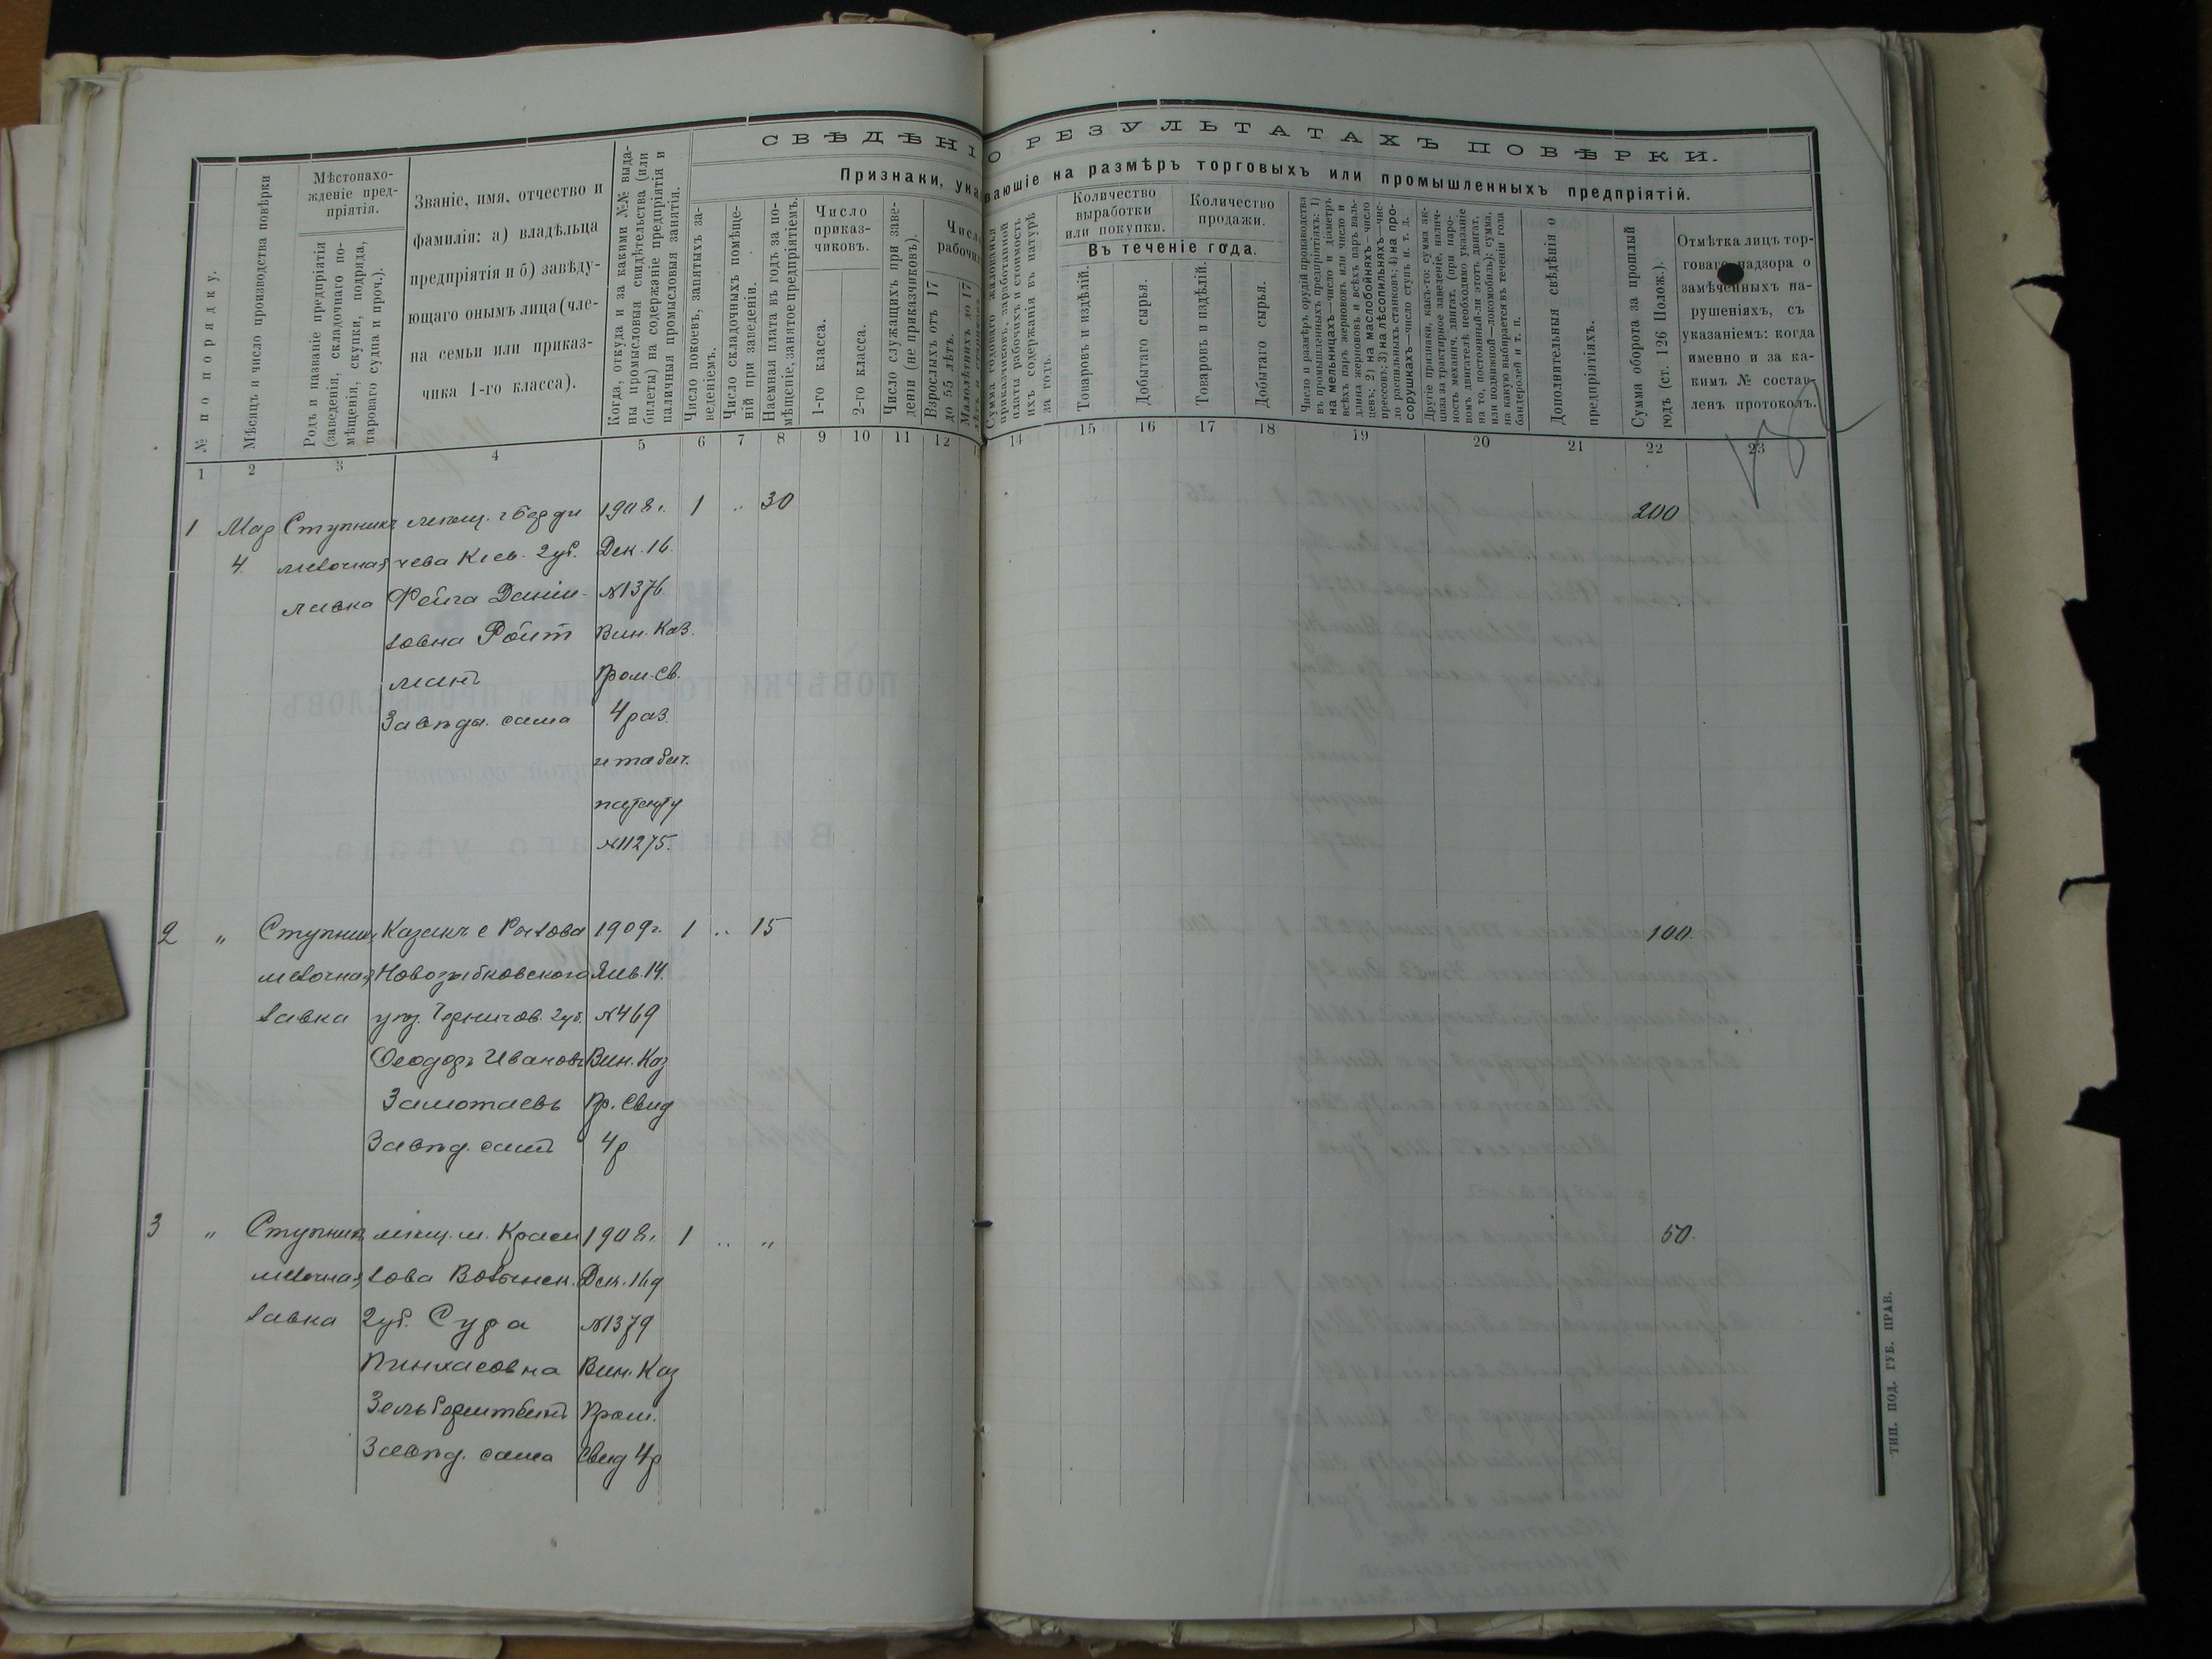 СВѢДѢНІ О РЕЗУЛЬТАТАХЪ ПОВѢРКИ.
Признаки, ука вающіе на размѣръ торговыхъ или промышленныхъ предпріятій.
№ по порядку.
Мѣсяцъ и число производства повѣрки
Мѣстонахо-
жденіе пред-
пріятія.
Родъ и названіе предпріятія
(заведенія, складочнаго по-
мѣщенія, скупки, подряда,
пароваго судна и проч.).
Званіе, имя, отчество и
фамилія: а) владѣльца
предпріятія и б) завѣду-
ющаго онымъ лица (чле-
на семьи или приказ-
чика 1-го класса).
Когда, откуда и за какими №№ выда-
ны промысловыя свидѣтельства (или
билеты) на содержаніе предпріятія и
наличныя промысловыя занятія.
Число покоевъ, занятыхъ за-
веденіемъ.
Число складочныхъ помѣще-
ній при заведеніи.
Наемная плата въ годъ за по-
мѣщеніе, занятое предпріятіемъ.
Число
приказ-
чиковъ.
1-го класса.
2-го класса.
Число служащихъ при заве-
деніи (не приказчиковъ).
Число
рабочи
Взрослыхъ отъ 17
до 55 лѣтъ.
Малолѣтнихъ до 17
Сумма годоваго жалованья
приказчиковъ, заработанной
платы рабочихъ и стоимость
ихъ содержанія въ натурѣ
за годъ.
Количество
выработки
или покупки.
Количество
продажи.
Въ теченіе года.
Товаровъ и издѣлій.
Добытаго сырья.
Товаровъ и издѣлій.
Добытаго сырья.
Число и размѣръ орудій производства
въ промышленныхъ предпріятіяхъ: 1)
на мельницахъ—число и діаметръ
всѣхъ паръ жернововъ или число и
длина жернововъ и всѣхъ паръ валь-
цевъ; 2) на маслобойняхъ—число
прессовъ; 3) на лѣсопильняхъ—чис-
ло распильныхъ станковъ; 4) на про-
сорушкахъ—число ступъ и. т. д.
Другіе признаки, какъ-то: сумма ак-
циза за трактирное заведеніе, налич-
ность механич. двигат. (при паро-
вомъ двигателѣ необходимо указаніе
на то, постоянный-ли этотъ двигат.
или подвижной—локомобиль); сумма,
на какую выбирается въ теченіи года
бандеролей и т. п.
Дополнительныя свѣдѣнія о
предпріятіяхъ.
Сумма оборота за прошлый
годъ (ст. 126 Полож.).
Отмѣтка лицъ тор-
говаго надзора о
замѣченныхъ на-
рушеніяхъ, съ
указаніемъ: когда
именно и за ка-
кимъ № состав-
ленъ протоколъ.
1 2 3 4 5 6 7 8 9 10 11 12 14 15 16 17 18 19 20 21 22 23
1 Мар Ступники мѣщ. г Берди 1908 г. 1 „ 30 200
4. мелочная чева Кіев. губ. Дек. 16.
лавка Фейга Даніи- №1376
ловна Ройт Вин. Каз.
манъ Пром. Св.
Завѣды. сама 4 раз.
и табач.
патенту
№11275.
2 „ Ступник Казакъ с 1909 г. 1 „ 15 100.
мелочная Новозыбковского Янв. 14.
лавка уѣз. Чернигов. губ. №469
Ѳеодоръ Иванов Вин. Каз
Замотаевъ Пр. Свид
Завѣд. самъ 4 р
3 „ Ступник мѣщ. м. Краси 1908 г. 1 „ „ 50.
мелочная лова Волынск. Дек. 16 д
лавка губ. Сура №1379
Пинхасовна Вин. Каз
Пром.
Завѣд. сама Свид 4 р
ТИП. ПОД. ГУБ. ПРАВ.